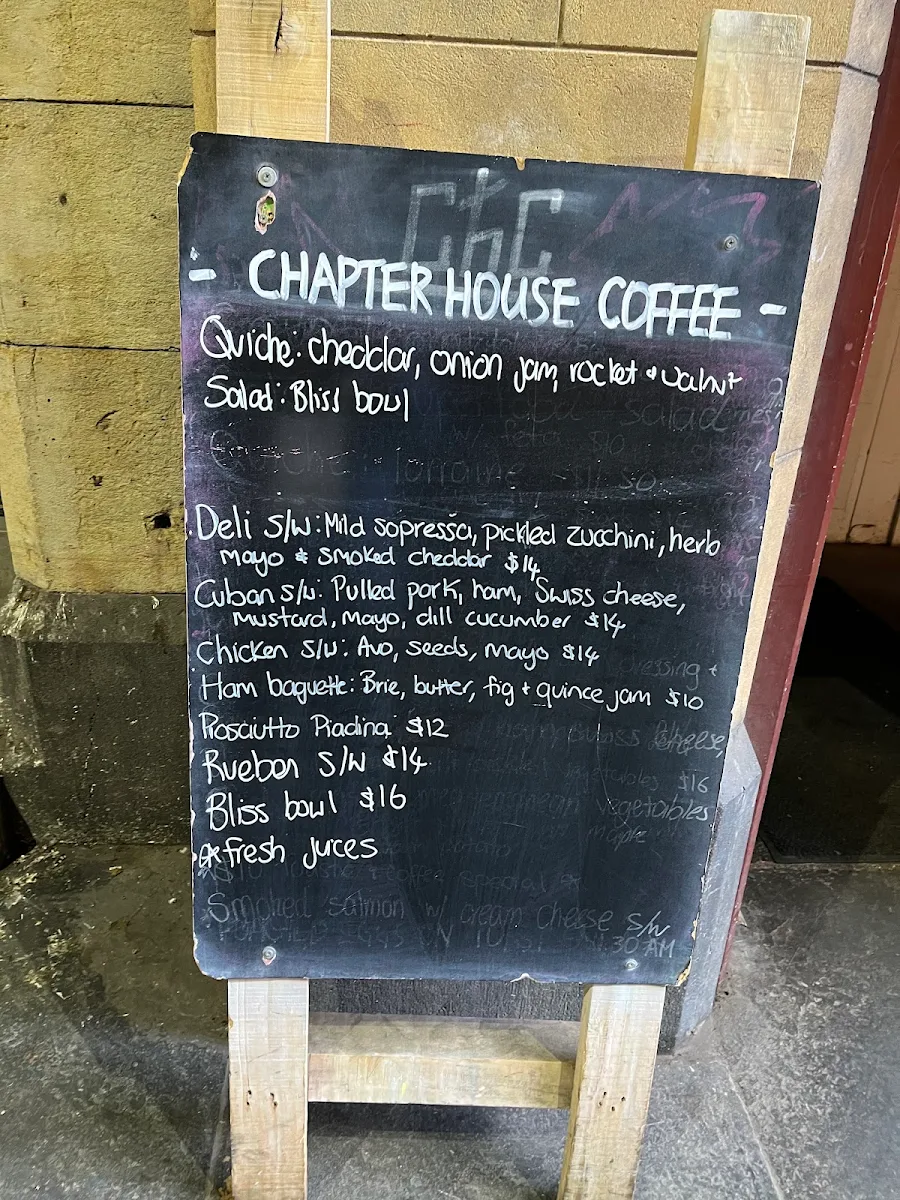 CHC
- CHAPTER HOUSE COFFEE -
Quiche: cheddar, onion jam, rocket + walnut
Salad: Bliss bowl
Quiche lorraine $11.50
Deli S/W: Mild sopressa, pickled zucchini, herb
Mayo & smoked cheddar $14
Cuban s/w: Pulled pork, ham, Swiss cheese,
mustard, mayo, dill cucumber $14
Chicken S/W: Avo, seeds, mayo $14
Ham baguette: Brie, butter, fig + quince jam $10
Prosciutto Piadina $12
Rueben S/W $14
Bliss bowl $16
*fresh juices
Smoked salmon w/ cream cheese s/w